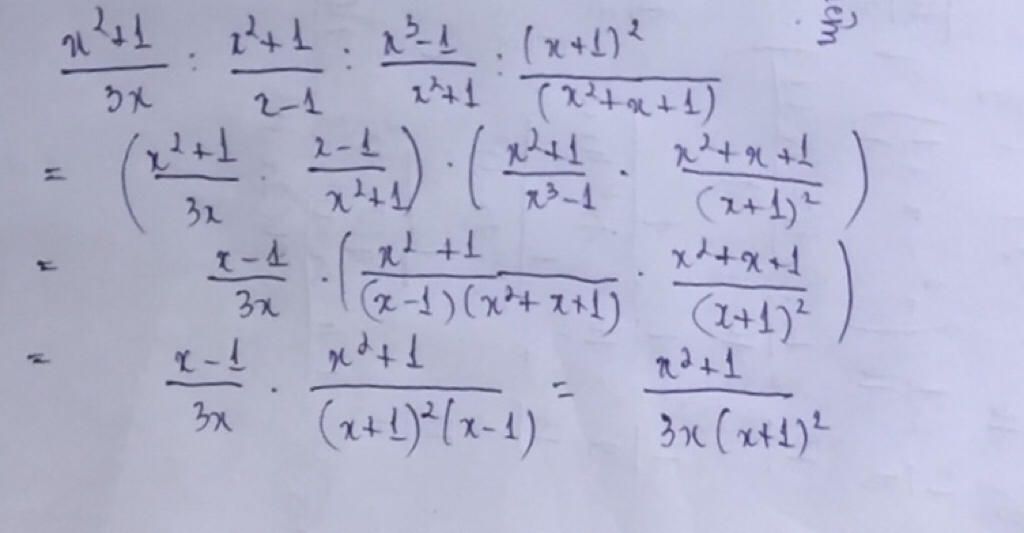 (x²+1)/(3x) : (x²+1)/(x-1) : (x³-1)/(x²+1) : (x+1)²/(x²+x+1)
= ((x²+1)/(3x) · (x-1)/(x²+1)) · ((x²+1)/(x³-1) · (x²+x+1)/(x+1)²)
= (x-1)/(3x) · ((x²+1)/((x-1)(x²+x+1)) · (x²+x+1)/(x+1)²)
= (x-1)/(3x) · (x²+1)/((x+1)²(x-1)) = (x²+1)/(3x(x+1)²)